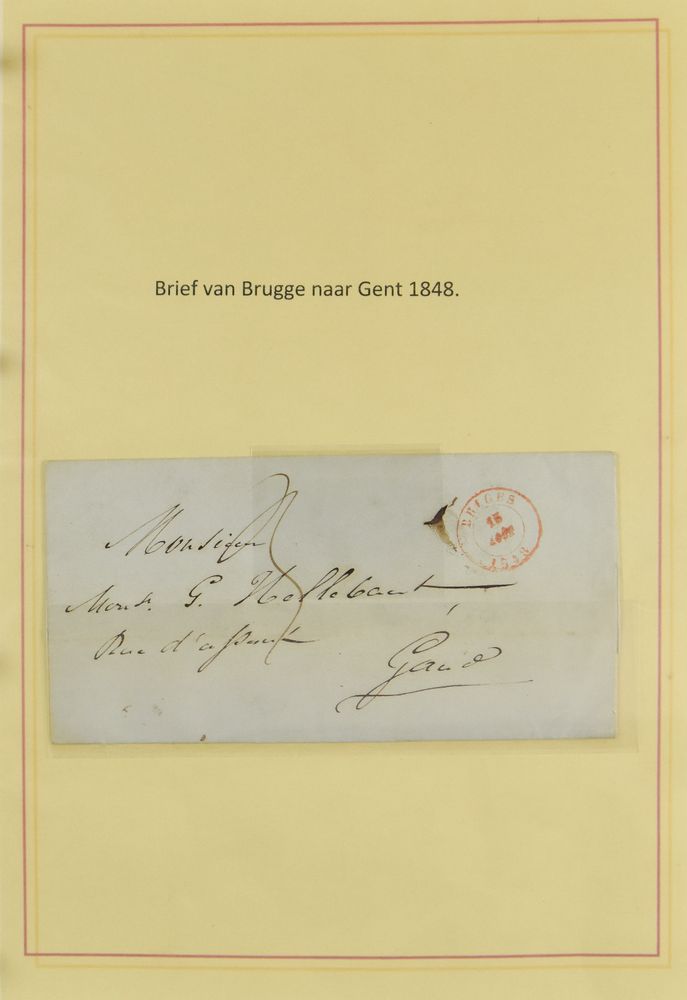 Brief van Brugge naar Gent 1848.
BRUGES
15
AOUT
1848
Monsieur
Monsr. G. Hellebaut
Rue d'
Gand